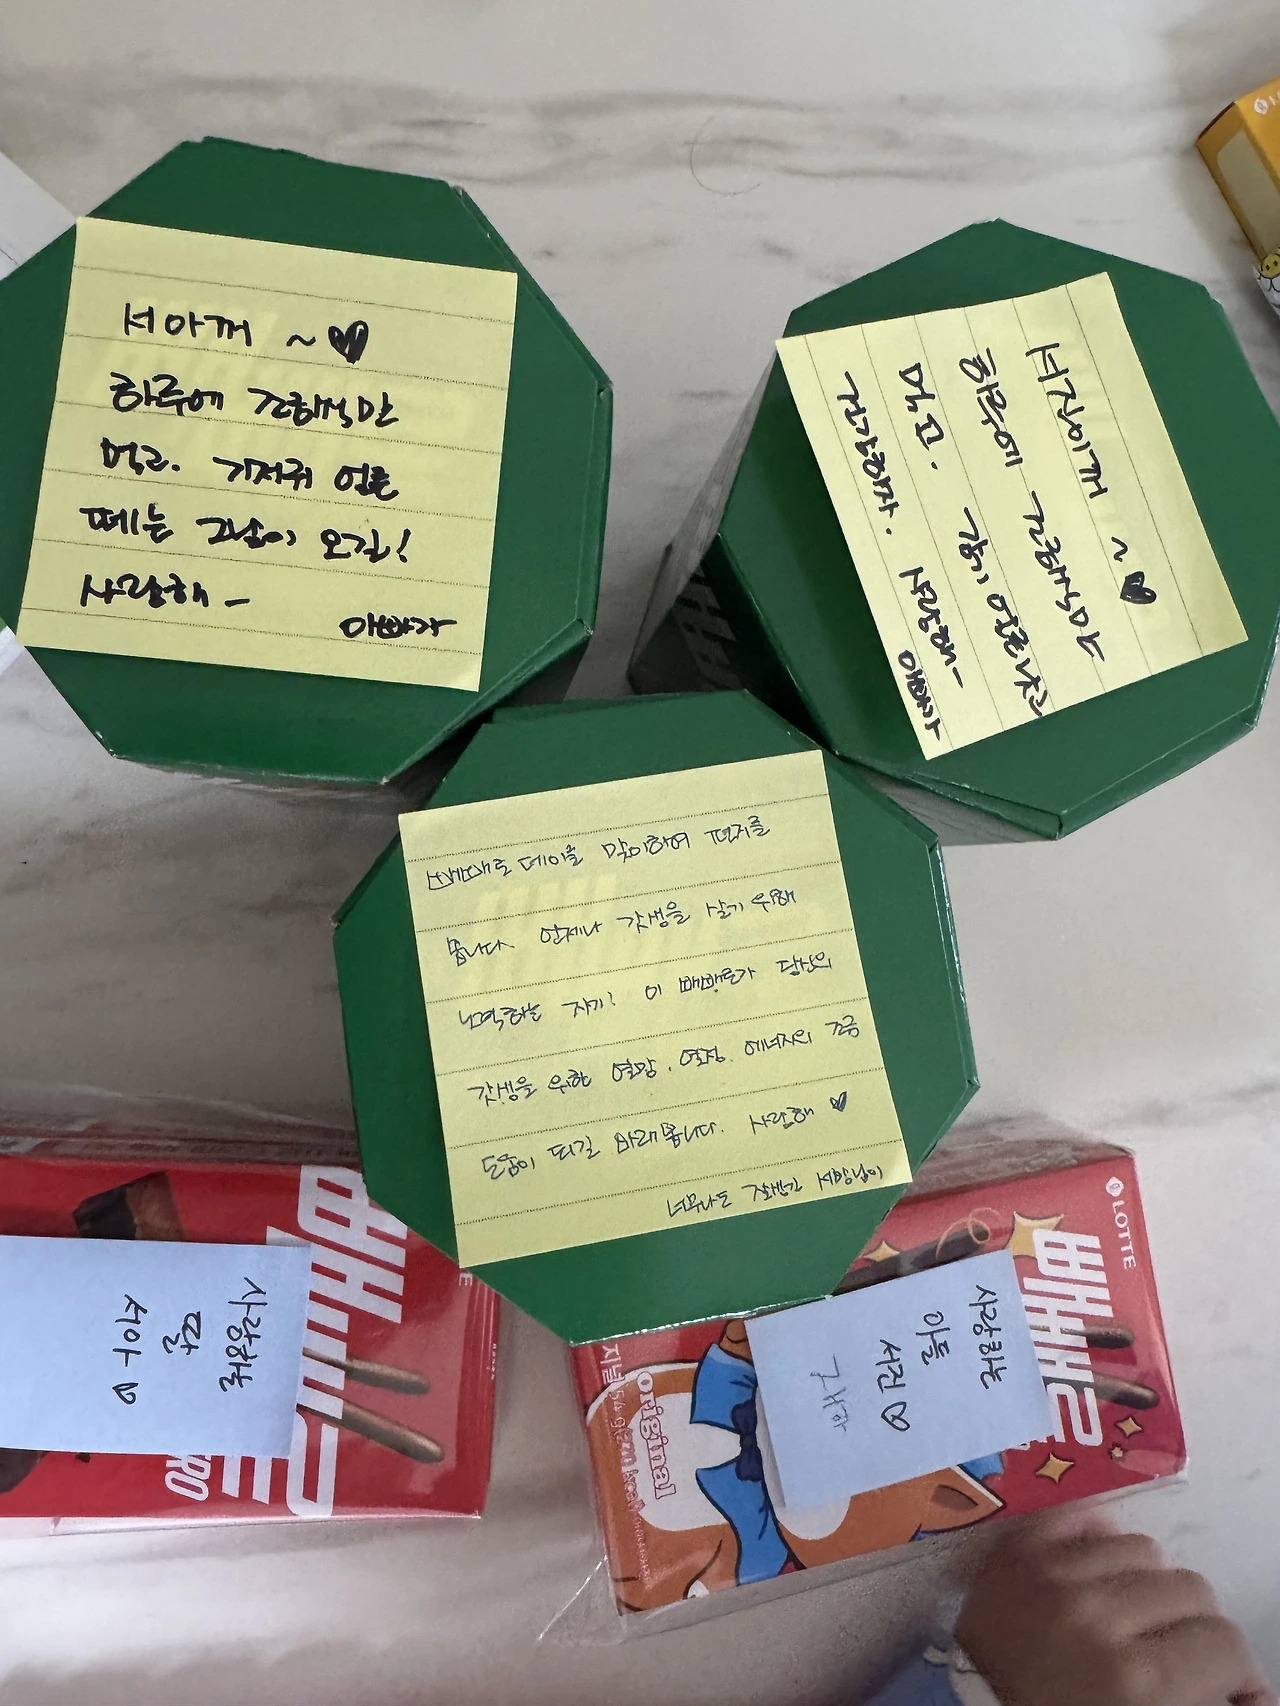 서아꺼 ~♥
하루에 2회씩만
먹고. 기저귀 얼른
떼는 그날이 오길!
사랑해 -
아빠가
서진이꺼 ~ ♥
하루에 2회씩만
먹고. 감기 얼른 낫고
건강하자. 사랑해-
아빠가
빼빼로 데이를 맞이하여 편지를
씁니다. 언제나 갓생을 살기 위해
노력하는 자기! 이 빼빼로가 당신의
갓생을 위한 열망. 열정. 에너지의 조금
도움이 되길 바래봅니다. 사랑해 ♥
너무나도 잘생긴 서방님이
사랑하는
딸
서아 ♡
빼빼로
사랑하는
아들
서진 ♡
LOTTE
빼빼로
original